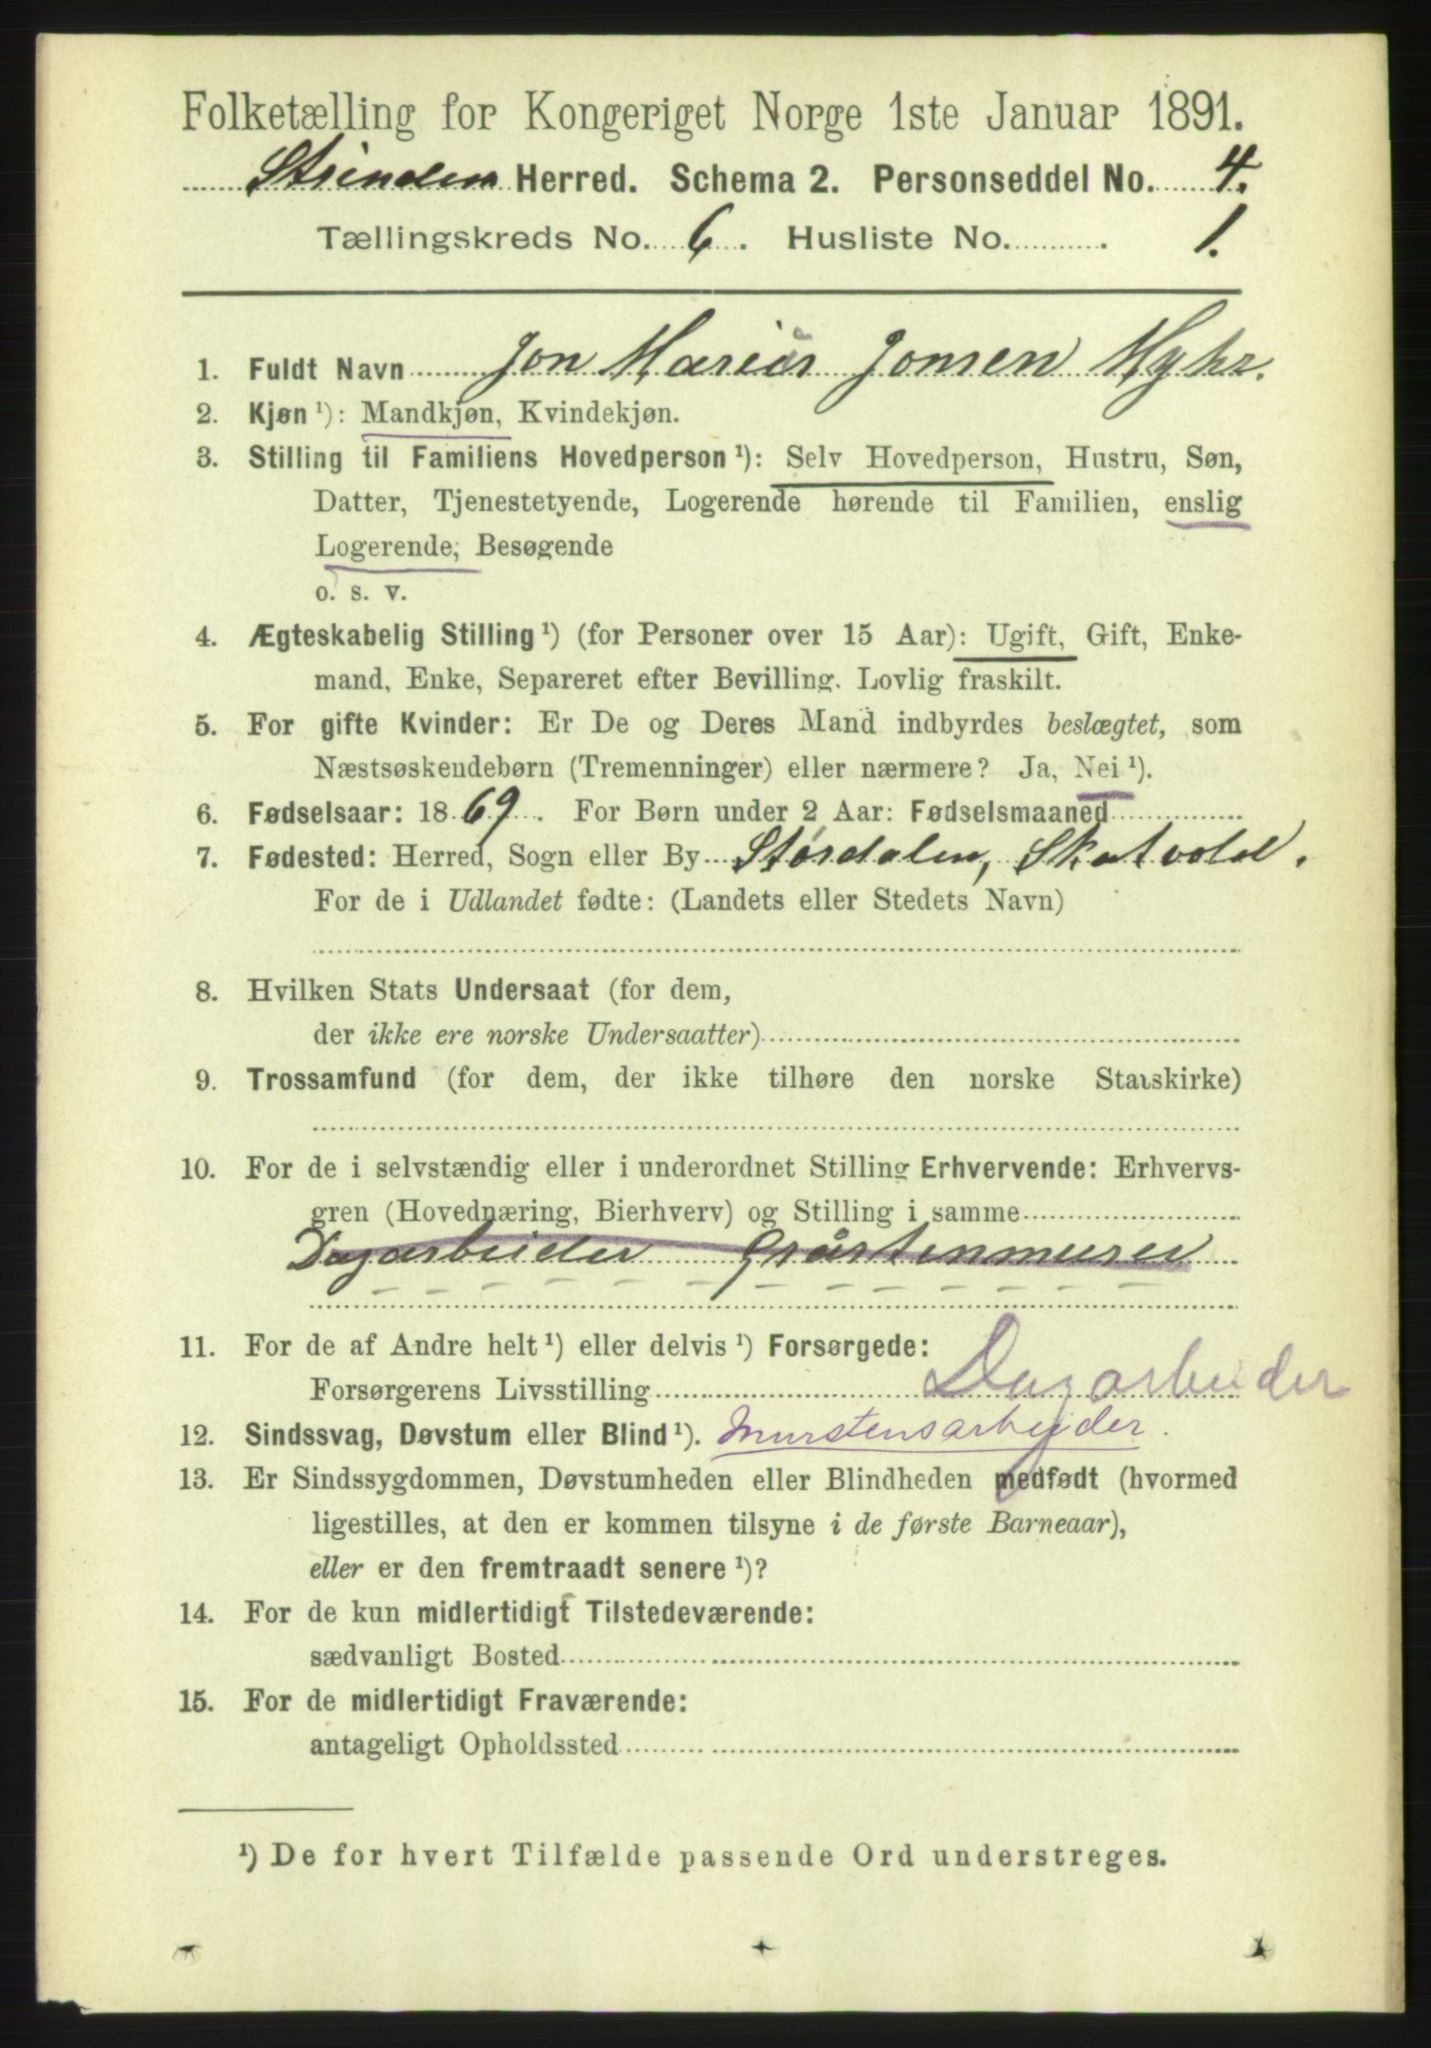 Folketælling for Kongeriget Norge 1ste Januar 1891.
Strinden Herred. Schema 2. Personseddel No. 4.
Tællingskreds No. 6. Husliste No. 1.
1. Fuldt Navn Jon Marius Jonsen Myhr.
2. Kjøn ¹): Mandkjøn, Kvindekjøn.
3. Stilling til Familiens Hovedperson ¹): Selv Hovedperson, Hustru, Søn,
Datter, Tjenestetyende, Logerende hørende til Familien, enslig
Logerende, Besøgende
o. s. v.
4. Ægteskabelig Stilling ¹) (for Personer over 15 Aar): Ugift, Gift, Enke-
mand, Enke, Separeret efter Bevilling. Lovlig fraskilt.
5. For gifte Kvinder: Er De og Deres Mand indbyrdes beslægtet, som
Næstsøskendebørn (Tremenninger) eller nærmere? Ja, Nei ¹).
6. Fødselsaar: 1869. For Børn under 2 Aar: Fødselsmaaned
7. Fødested: Herred, Sogn eller By Størdalen, Skatvold.
For de i Udlandet fødte: (Landets eller Stedets Navn)
8. Hvilken Stats Undersaat (for dem,
der ikke ere norske Undersaatter)
9. Trossamfund (for dem, der ikke tilhøre den norske Statskirke)
10. For de i selvstændig eller i underordnet Stilling Erhvervende: Erhvervs-
gren (Hovednæring, Bierhverv) og Stilling i samme
Dagarbeider Gråstenmurer
11. For de af Andre helt ¹) eller delvis ¹) Forsørgede:
Forsørgerens Livsstilling Dagarbeider
12. Sindssvag, Døvstum eller Blind ¹). Murstensarbejder.
13. Er Sindssygdommen, Døvstumheden eller Blindheden medfødt (hvormed
ligestilles, at den er kommen tilsyne i de første Barneaar),
eller er den fremtraadt senere ¹)?
14. For de kun midlertidigt Tilstedeværende:
sædvanligt Bosted
15. For de midlertidigt Fraværende:
antageligt Opholdssted
¹) De for hvert Tilfælde passende Ord understreges.